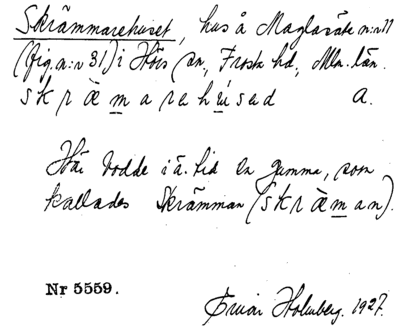 Skrämmarehuset, hus å Maglasäte n:r 11
(fig. n:r 31) i Hörs sn, Frosta hd, Mlm. län.
skræmarehúsed a.
Här bodde i ä. tid en gumma, som
kallades Skrämman (skræman).
Nr 5559.
Ingvar Holmberg. 1927.